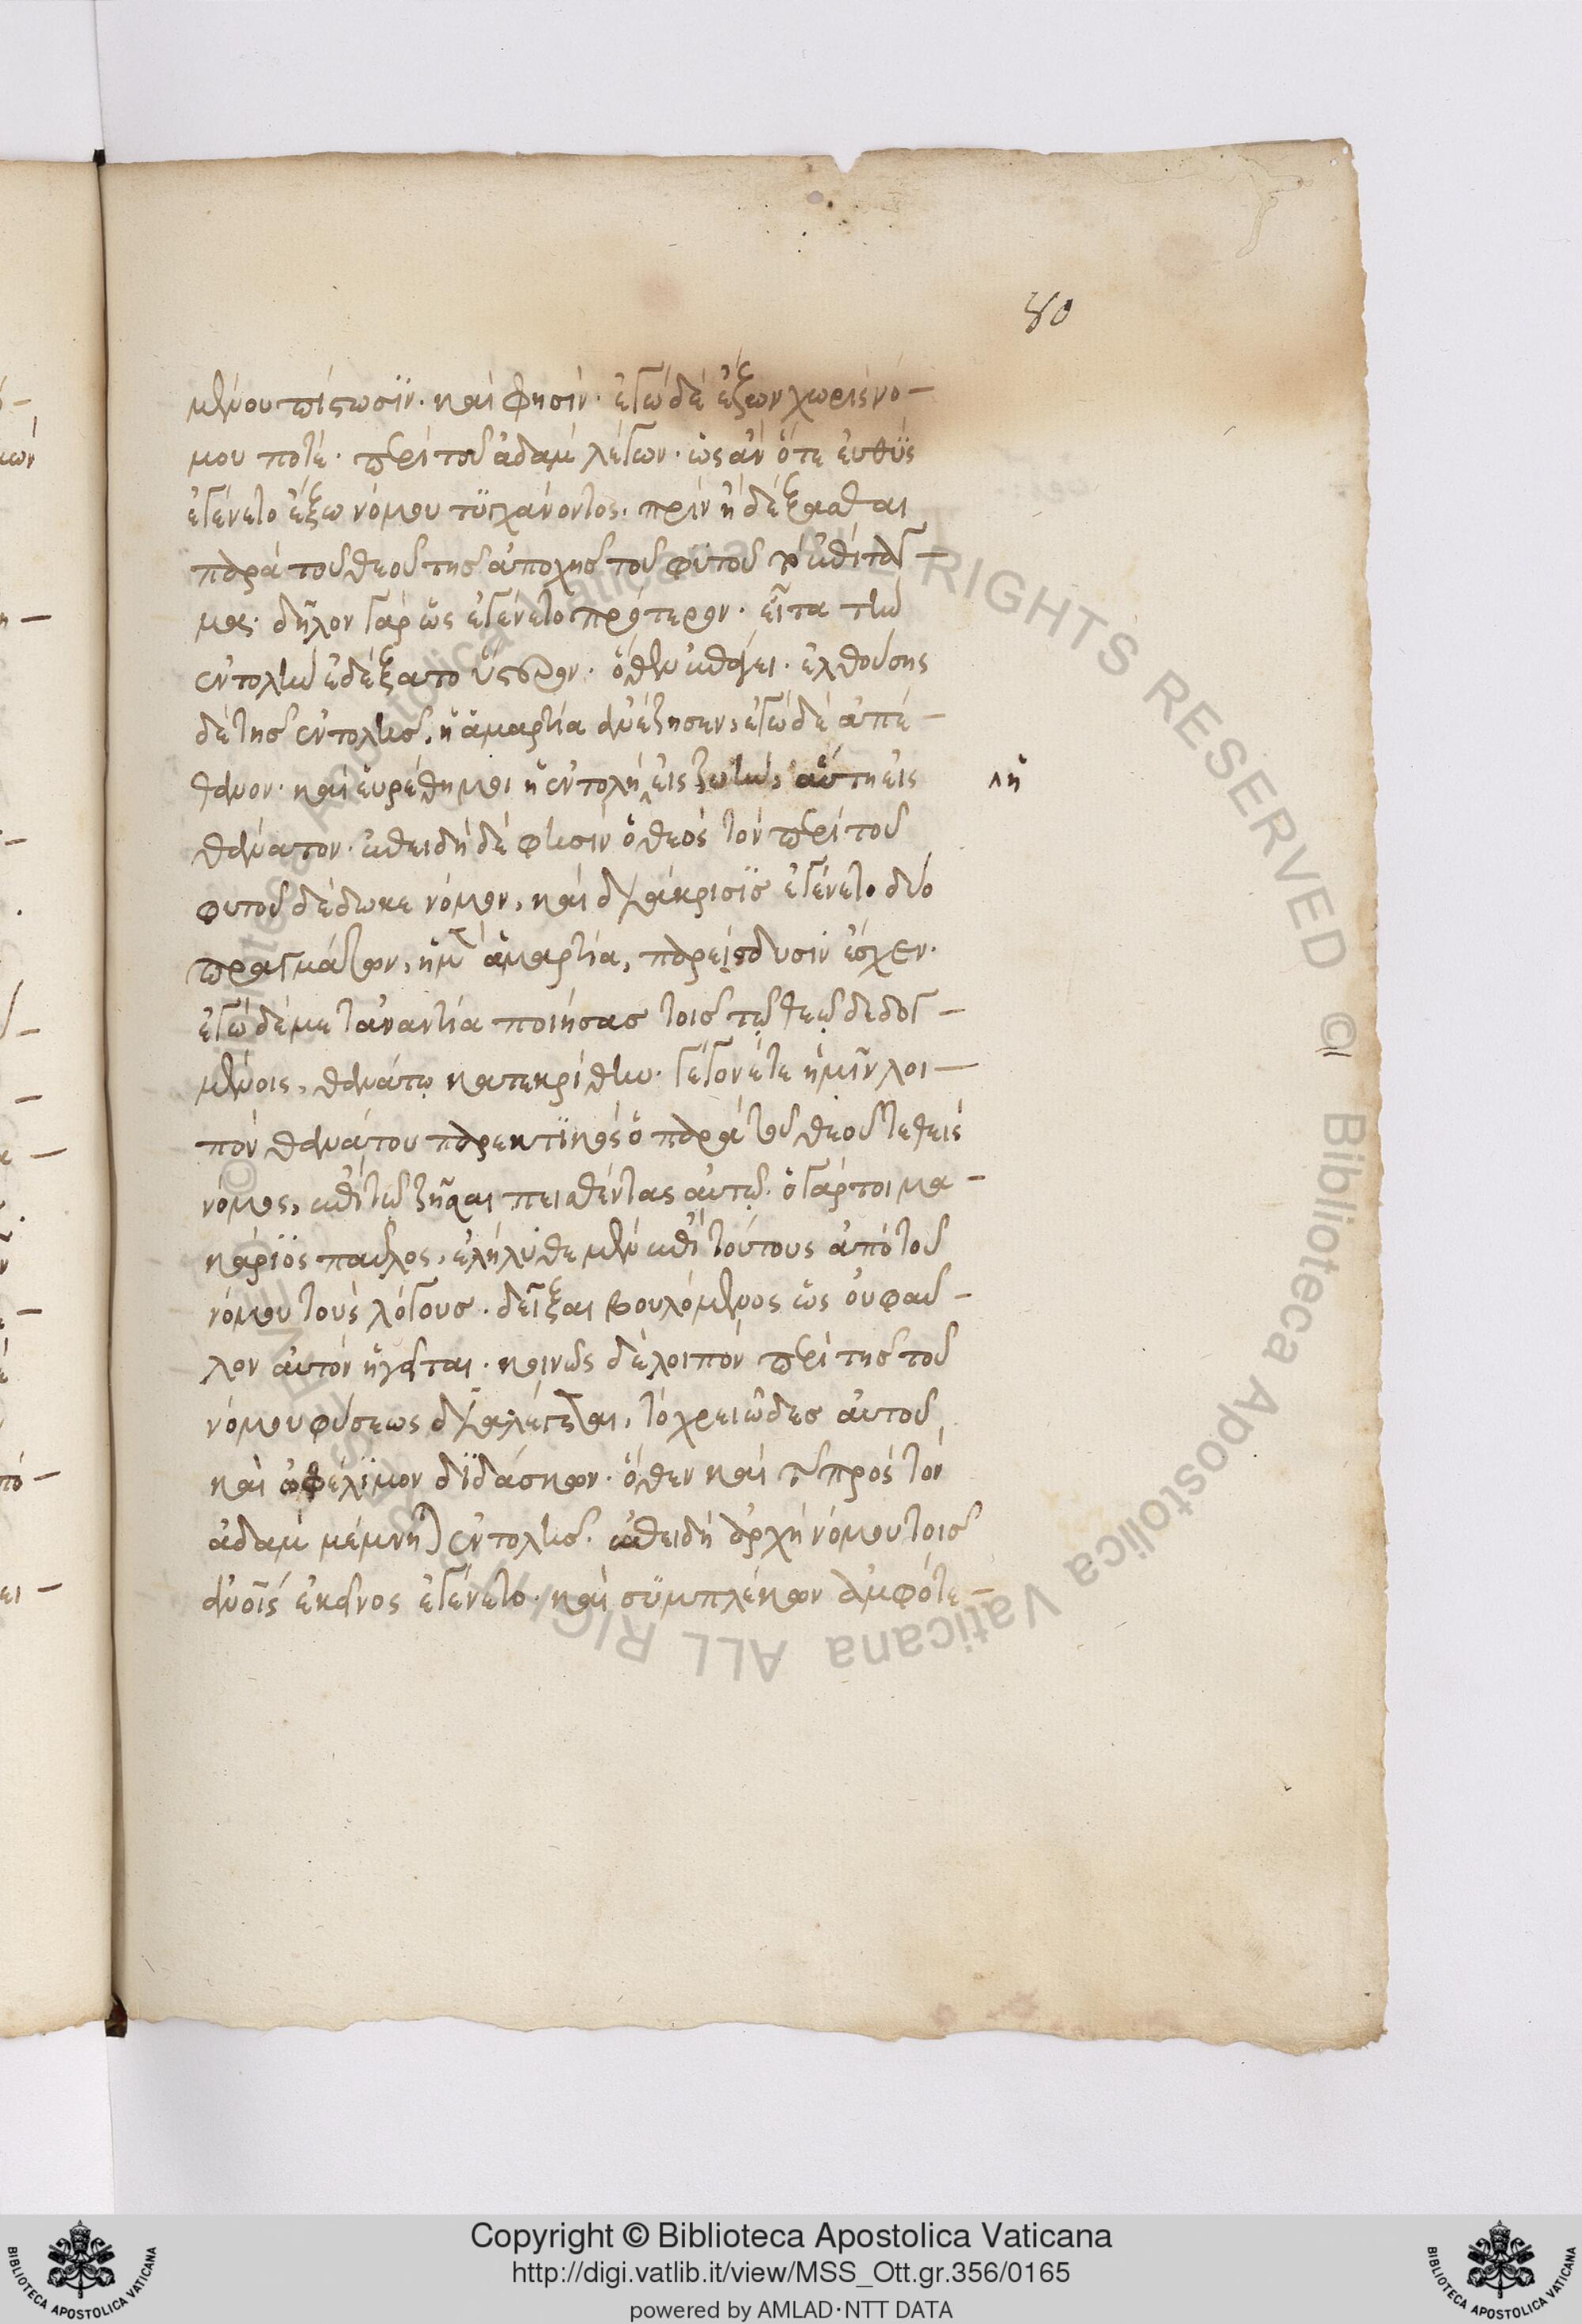 80
μένου πίστωσιν. καὶ φησίν· ἐγὼ δὲ ἔζων χωρὶς νό-
μου ποτέ· περὶ τοῦ ἀδὰμ λέγων· ὡς ἂν ὅτε εὐθὺς
ἐγένετο ἔξω νόμου τυγχάνοντος. πρὶν ἢ δέξασθαι
παρὰ τοῦ θεοῦ τῆς ἀποχῆς τοῦ φυτοῦ τὸ ἐπίταγ-
μα· δῆλον γὰρ ὡς ἐγένετο πρότερον· εἶτα τὴν
ἐντολὴν ἐδέξατο ὕστερον. ὅθεν ἐπάγει. ἐλθούσης
δὲ τῆς ἐντολῆς, ἡ ἁμαρτία ἀνέζησεν, ἐγὼ δὲ ἀπέ-
θανον· καὶ εὑρέθη μοι ἡ ἐντολὴ ‸ εἰς ζωὴν, αὕτη εἰς ‸ ἡ
θάνατον. ἐπειδὴ δέ φησιν ὁ θεὸς τὸν περὶ τοῦ
φυτοῦ δέδωκε νόμον, καὶ διάκρισις ἐγένετο δύο
πραγμάτων, ἡ μὲν ἁμαρτία, παρείσδυσιν ἔσχεν.
ἐγὼ δέ με τἀναντία ποιήσας τοῖς τῷ θεῷ δεδογ-
μένοις, θανάτῳ κατεκρίθην. γέγονέ τε ἡμῖν λοι-
πὸν θανάτου παρεκτικὸς ὁ παρὰ τοῦ θεοῦ τεθεὶς
νόμος, ἐπὶ τῷ ζῆσαι πεισθέντας αὐτῷ. ὁ γάρ τοι μα-
κάριος παῦλος, ἐλήλυθε μὲν ἐπὶ τούτους ἀπὸ τοῦ
νόμου τοὺς λόγους. δεῖξαι βουλόμενος ὡς οὐ φαῦ-
λον αὐτὸν ἡγεῖται. κοινῶς δὲ λοιπὸν περὶ τῆς τοῦ
νόμου φύσεως διαλέγεται, τὸ χρειῶδες αὐτοῦ
καὶ ὠφέλιμον διδάσκων. ὅθεν καὶ τῆς πρὸς τὸν
ἀδὰμ μέμνηται ἐντολῆς. ἐπειδὴ ἀρχὴ νόμου τοῖς
ἀνοις ἐκεῖνος ἐγένετο. καὶ συμπλέκων ἀμφότε-
Copyright © Biblioteca Apostolica Vaticana
http://digi.vatlib.it/view/MSS_Ott.gr.356/0165
powered by AMLAD·NTT DATA